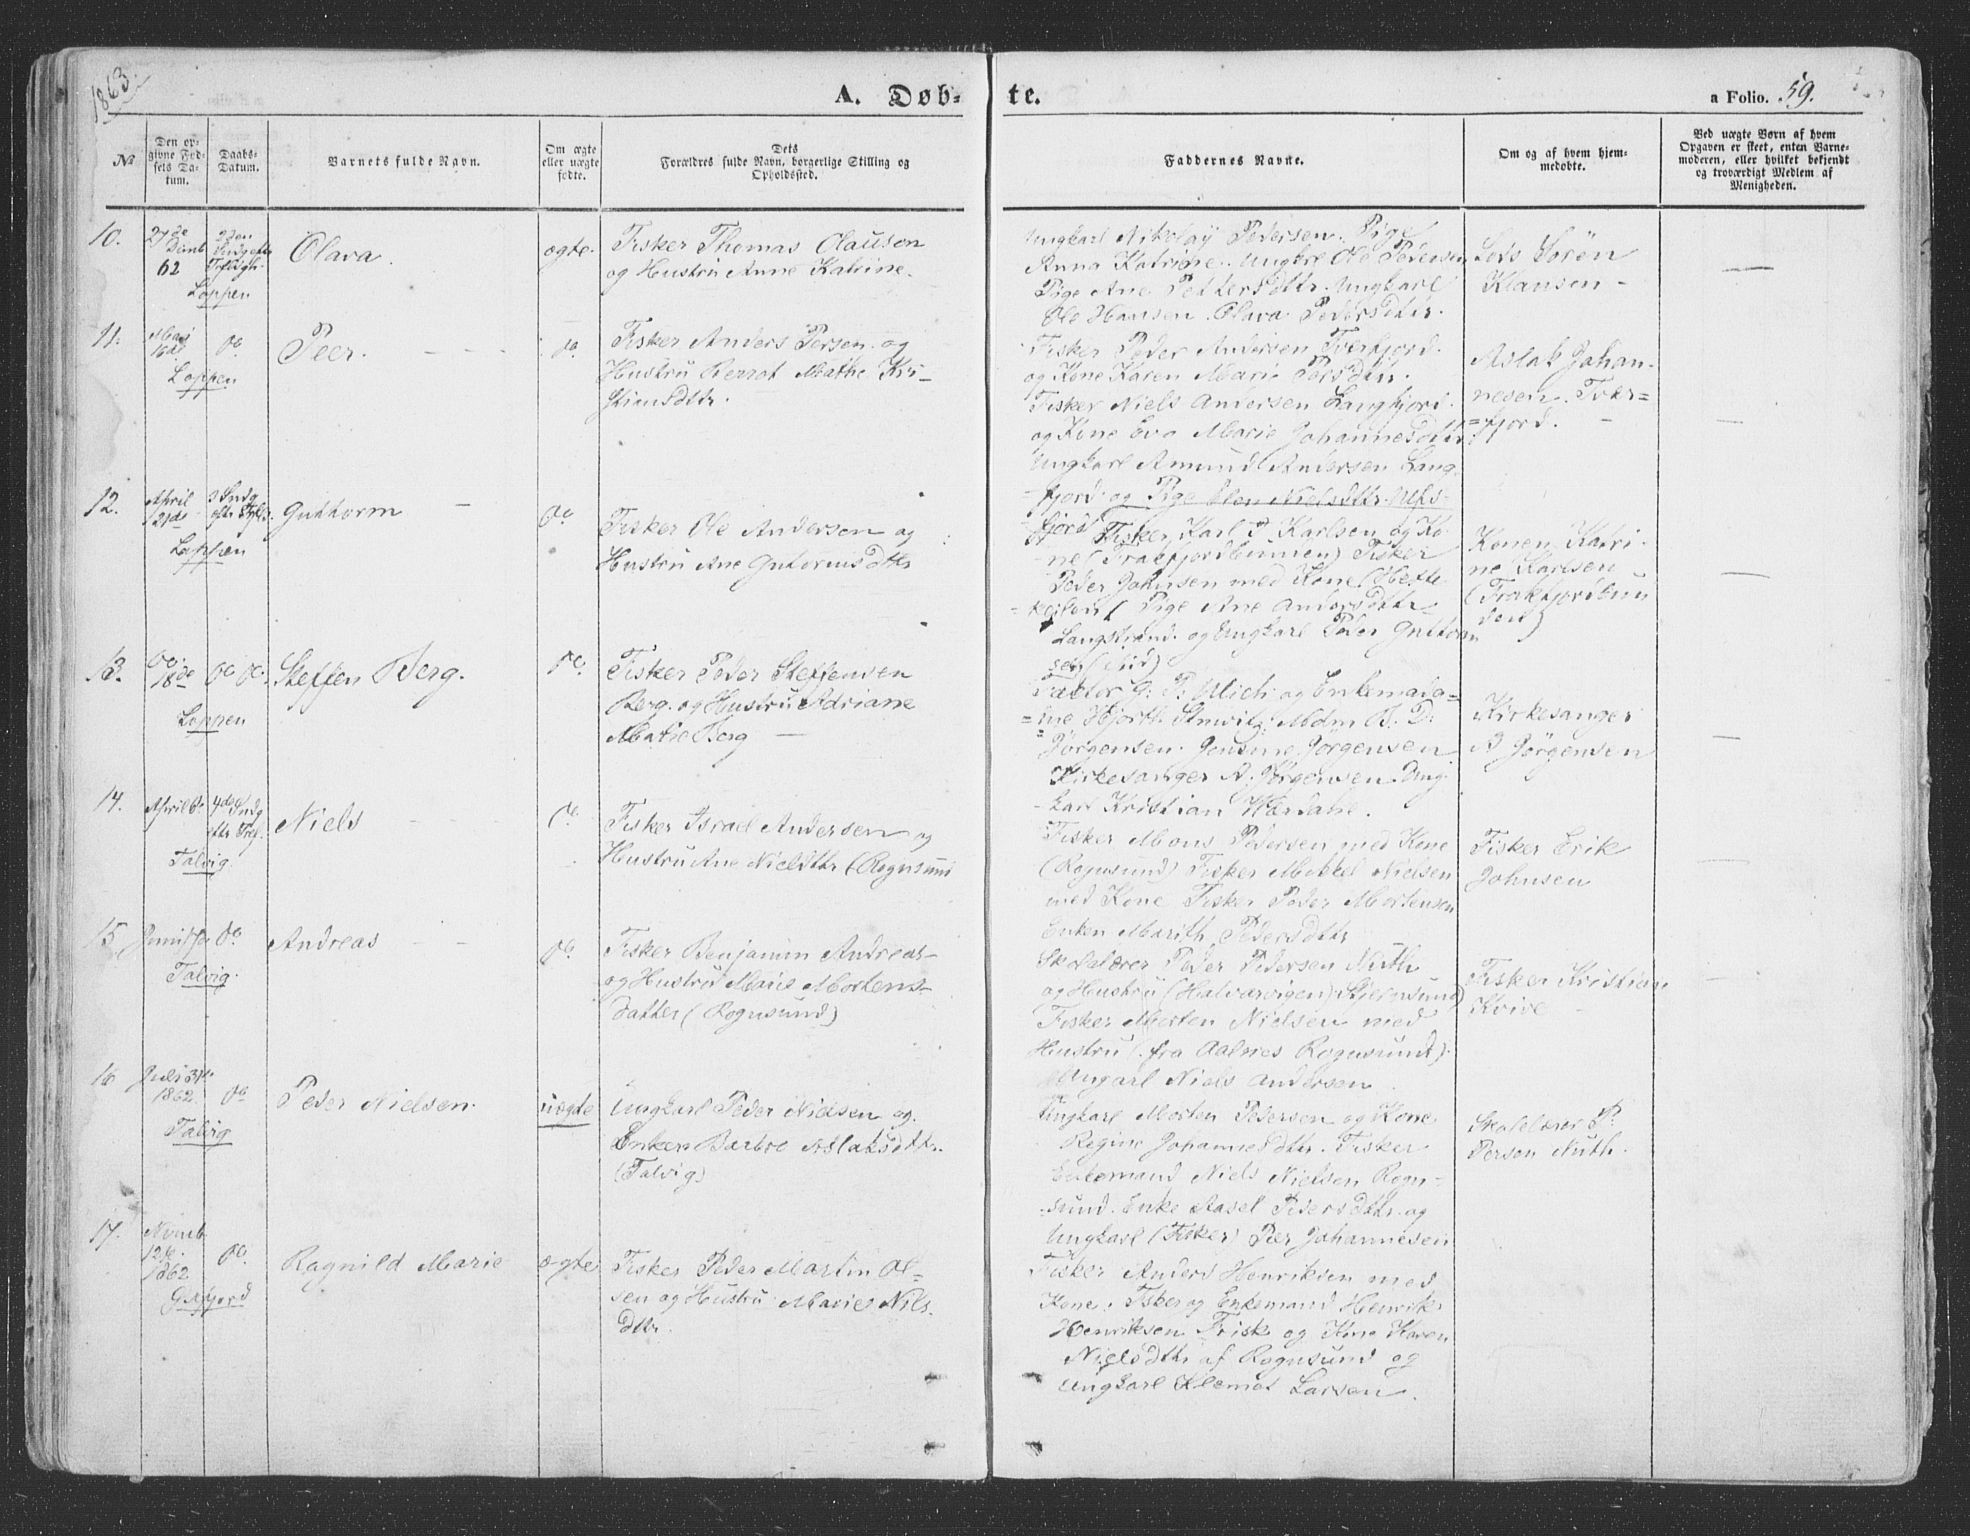 1863.
A. Døbte.
a Folio. 59.
No
Den opgivne Fødsels Datum.
Daabs-Datum.
Barnets fulde Navn.
Om ægte eller uægte fødte.
Dets Forældres fulde Navn, borgerlige Stilling og Opholdssted.
Faddernes Navne.
Om og af hvem hjemmedøbte.
Ved uægte Børn af hvem Opgaven er skeet, enten Barnemoderen, eller hvilket bekjendt og troværdigt Medlem af Menigheden.
10.
27de
62
Loppen
Olava.
ægte.
Fisker Thomas Olauson
og Hustru Anne Katrine.
Ungkarl Nikolay Pedersen. Pige
Anna Katrine. Ungkrl Ole Pedersen
Pige Ane Pettersdttr. Ungkarl
Ole Hansen. Olava Pedersdttr.
Lods Sørèn
Klausen -
11.
Mai
16de
Loppen
do
Peer.
do
Fisker Anders Persen og
Hustru Berrot Mathe Kri-
stiansdttr.
Fisker Peder Andersen Tverfjord.
og Kone Karen Marie Persdttr.
Fisker Niels Andersen Langfjord.
og Kone Eva Marie Johannesdttr
Ungkarl Amund Andersen Lang-
fjord og Pige Elen Nielsdttr. Ulfs-
fjord
Aslak Johan-
nesen. Tver=
=fjord.
12.
April
21de
Loppen
3 Sndg
Guttorm
do
Fisker Ole Anderson og
Hustru Ane Gutormsdttr
Fisker Karl P Karlsen og Ko-
ne (Frakfjordbunnen) Fisker
Peder Johnsen med Kone
Pige Ane Andersdttr
Langstrand. og Ungkarl Peder Guttorm
sen
Konen Katri-
ne Karlsen
(Frakfjordbun
den)
13.
do.
18de
Loppen
do do.
Steffen Berg.
do.
Fisker Peder Steffensen
Berg. og Hustru Adriane
Marie Berg
Factor G. P. Ulich og Enkemada=
=me Hjorth. Mdm B. D.
Jörgensen. Jörgensen
Kirkesanger A. Jörgensen. Ung-
karl Kristian
Kirkesanger
A Jörgensen
14.
April 6te
Talvig.
4de Sndg
eftr Tref.
Niels
do
Fisker Israel Andersen og
Hustru Ane Nielsdttr (Rognsund
Fisker Mons Pedersen med Kone
(Rognsund) Fisker Mekkel Nielsen
med Kone Fisker Peder Mortensen
Enken Marith Pedersdttr
Fisker Erik
Johnsen
15
Juni
Talvig.
do
Andreas
do.
Fisker Benjamin Andreas-
og Hustru Marie Mortens-
datter (Rognsund)
Skolelærer Peder Pedersen Nuth
og Hustru (Halvarvigen) Stjernsund)
Fisker Morten Nielsen med
Hustru (fra Aalnes Rognsund).
Ungkarl Niels Andersen.
Fisker Kristian
Kvive
16
Juli 31te
1862
Talvig
do
Peder Nielsen.
uægte
Ungkarl Peder Nielsen og.
Enken Barbro Aslaksdttr.
(Talvig)
Ungkarl Morten Pedersen og Kone
Regine Johannesdttr. Fisker
Enkemand Niels Nielsen Rogn-
sund. Enke Aasel Pedersdttr. og
Ungkarl (Fisker) Peer Johannesen
Skolelærer P.
Person Nuth.
17.
Novmb
12te.
1862
do.
Ragnild Marie
ægte
Fisker Peder Martin Ol-
sen og Hustru Marie Nils.
dttr.
Fisker Anders Henriksen med
Kone. Fisker og Enkemand Henrik
Henriksen Frisk og Kone Karen
Nielsdttr af Rognsund og
Ungkarl Klemet Larsen.